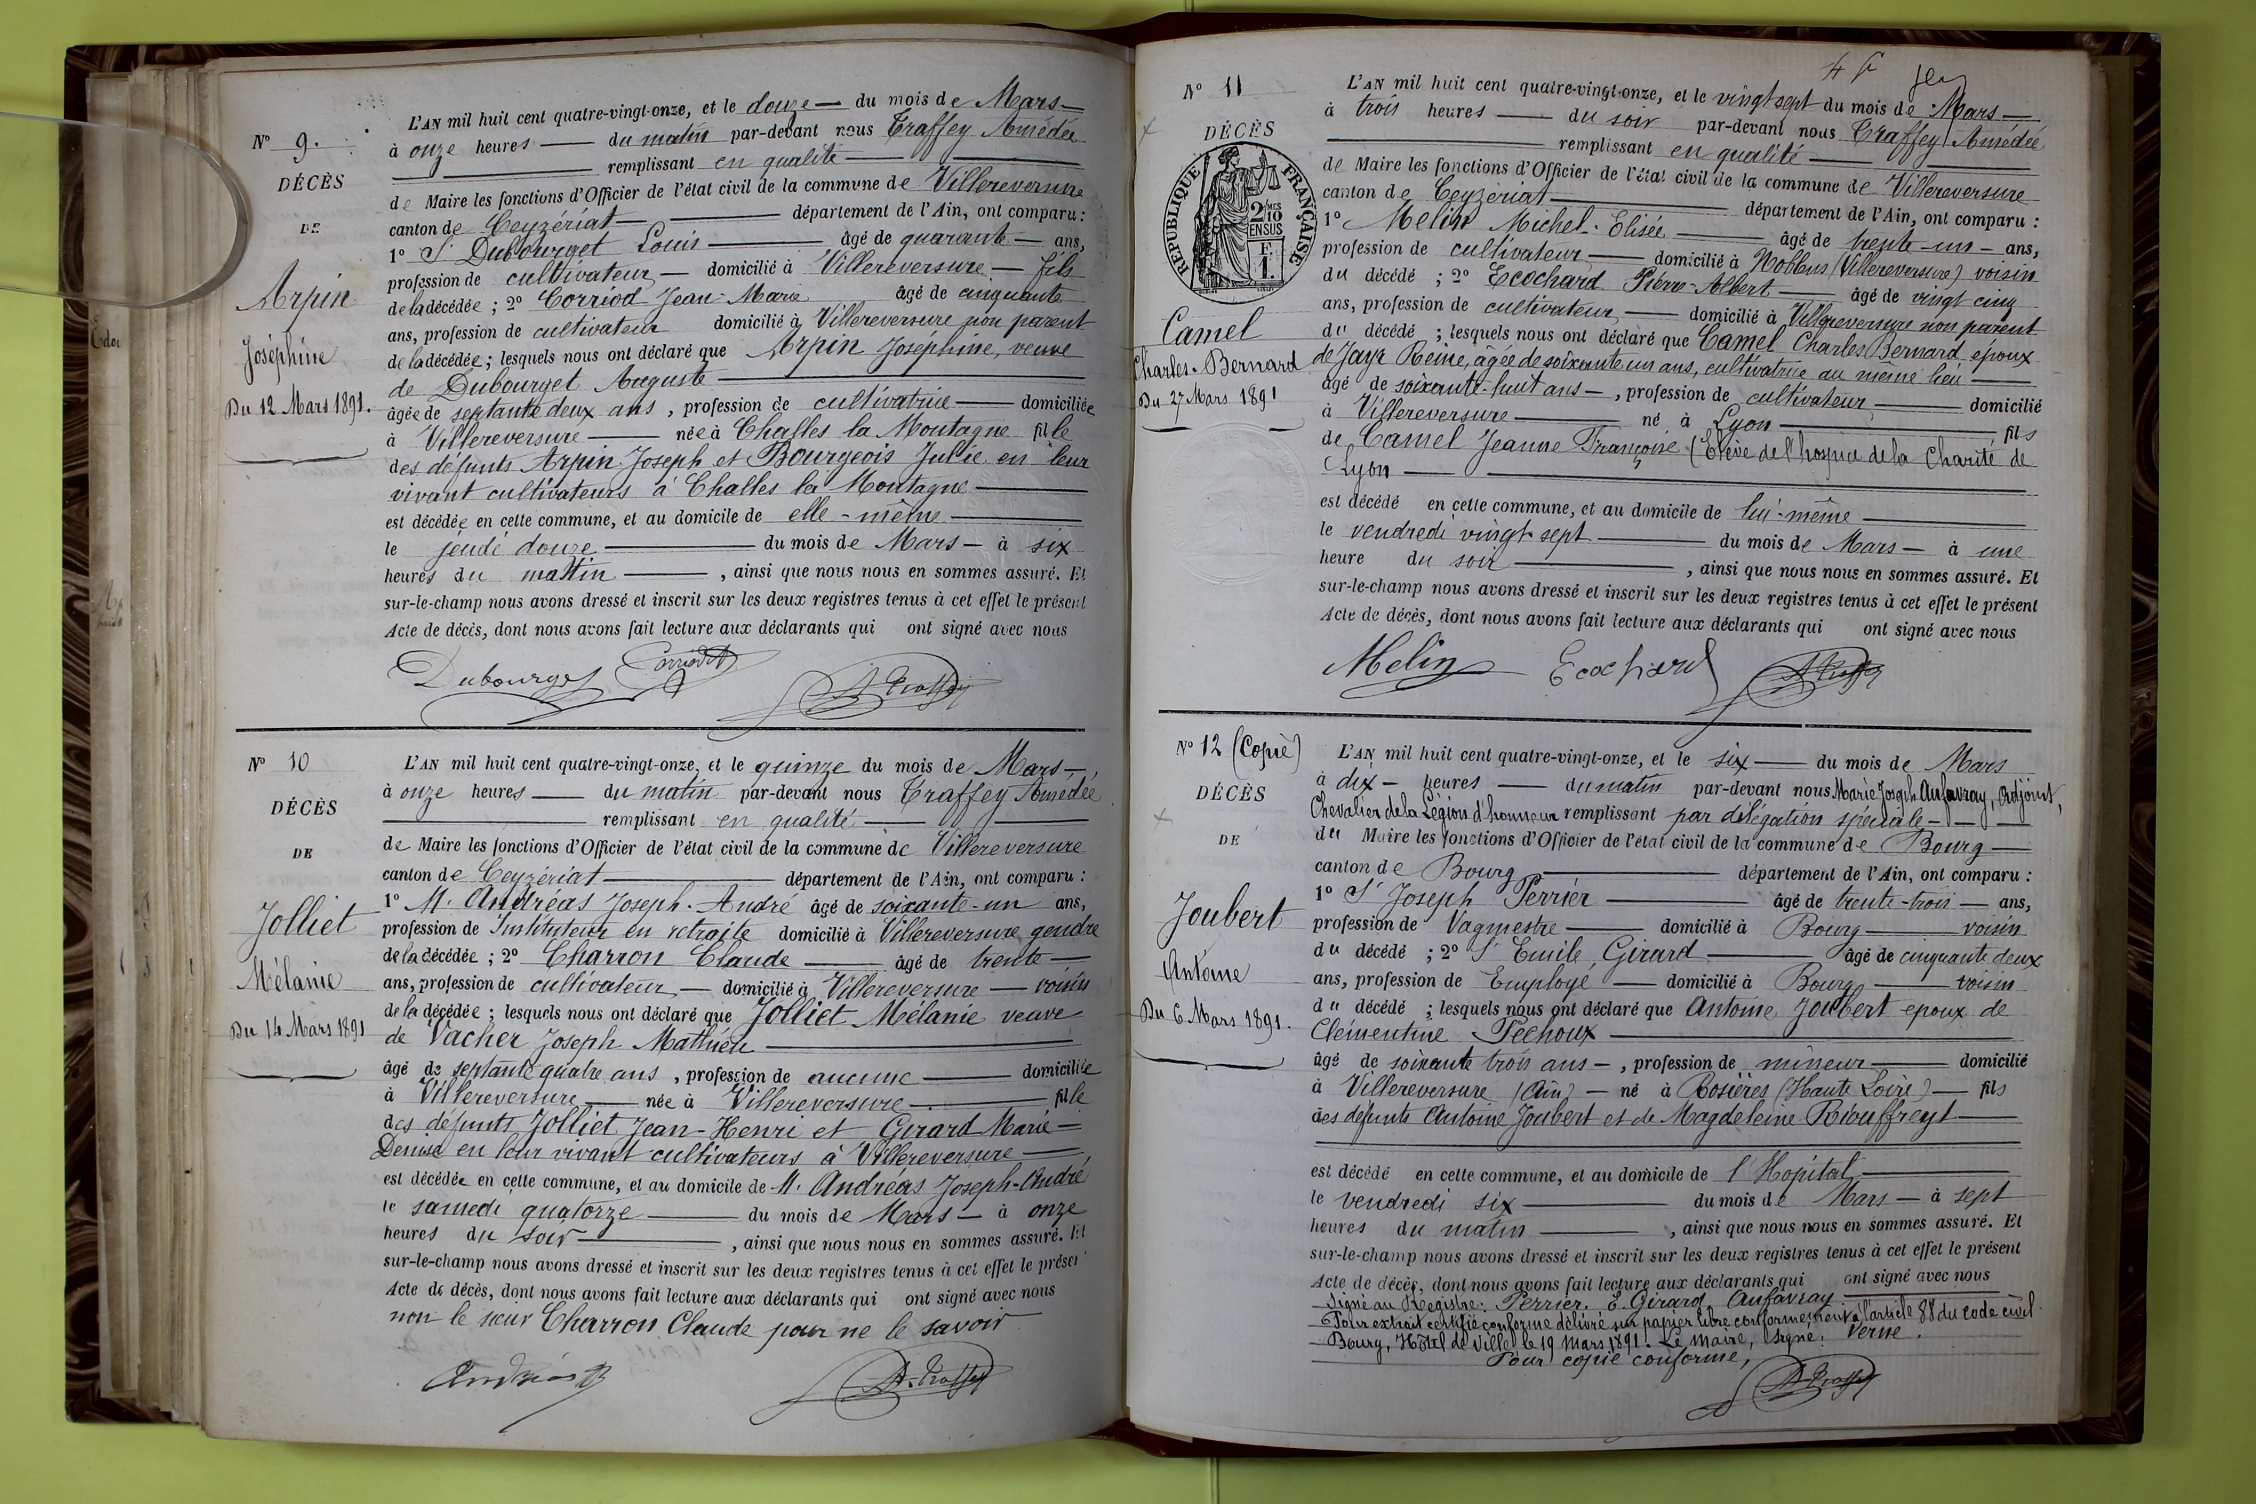 N° 9.
DÉCÈS
DE
Arpin
Joséphine
Du 12 Mars 1891.
L'AN mil huit cent quatre-vingt-onze, et le douze du mois de Mars
à onze heures du matin par-devant nous Traffey Amédée
remplissant en qualité
de Maire les fonctions d'Officier de l'état civil de la commune de Villereversure
canton de Ceyzériat département de l'Ain, ont comparu :
1° Sr Dubourget Louis âgé de quarante ans,
profession de cultivateur domicilié à Villereversure fils
de la décédée ; 2° Corriod Jean-Marie âgé de cinquante
ans, profession de cultivateur domicilié à Villereversure non parent
de la décédée ; lesquels nous ont déclaré que Arpin Josephine, veuve
de Dubourget Auguste
âgée de septante deux ans, profession de cultivatrice domiciliée
à Villereversure née à Challes la Montagne fille
des défunts Arpin Joseph et Bourgeois Julie en leur
vivant cultivateurs à Challes la Montagne
est décédée en cette commune, et au domicile de elle-même
le jeudi douze du mois de Mars à six
heures du mattin, ainsi que nous nous en sommes assuré. Et
sur-le-champ nous avons dressé et inscrit sur les deux registres tenus à cet effet le présent
Acte de décès, dont nous avons fait lecture aux déclarants qui ont signé avec nous
Dubourget Corriod A. Traffey
N° 10
DÉCÈS
DE
Jolliet
Mélanie
Du 14 Mars 1891
L'AN mil huit cent quatre-vingt-onze, et le quinze du mois de Mars
à onze heures du matin par-devant nous Traffey Amédée
remplissant en qualité
de Maire les fonctions d'Officier de l'état civil de la commune de Villereversure
canton de Ceyzériat département de l'Ain, ont comparu :
1° M. Andréas Joseph-André âgé de soixante-un ans,
profession de Instituteur en retraite domicilié à Villereversure gendre
de la décédée ; 2° Charron Claude âgé de trente
ans, profession de cultivateur domicilié à Villereversure voisin
de la décédée ; lesquels nous ont déclaré que Jolliet Mélanie veuve
de Vacher Joseph Mathieu
âgé de septante quatre ans, profession de aucune domiciliée
à Villereversure née à Villereversure fille
des défunts Jolliet Jean-Henri et Girard Marie-
Denise en leur vivant cultivateurs à Villereversure
est décédée en cette commune, et au domicile de M. Andréas Joseph-André
le samedi quatorze du mois de Mars à onze
heures du soir, ainsi que nous nous en sommes assuré. Et
sur-le-champ nous avons dressé et inscrit sur les deux registres tenus à cet effet le présent
Acte de décès, dont nous avons fait lecture aux déclarants qui ont signé avec nous
non le sieur Charron Claude pour ne le savoir
Andréas A. Traffey
N° 11
DÉCÈS
RÉPUBLIQUE FRANÇAISE
2/10 MES
EN SUS
F.
1.
Camel
Charles-Bernard
Du 27 Mars 1891
L'AN mil huit cent quatre-vingt-onze, et le vingt sept du mois de Mars
à trois heures du soir par-devant nous Traffey Amédée
remplissant en qualité
de Maire les fonctions d'Officier de l'état civil de la commune de Villereversure
canton de Ceyzériat département de l'Ain, ont comparu :
1° Melin Michel-Elisée âgé de trente-un ans,
profession de cultivateur domicilié à Noblens (Villereversure) voisin
du décédé ; 2° Ecochard Pierre-Albert âgé de vingt cinq
ans, profession de cultivateur domicilié à Villereversure non parent
du décédé ; lesquels nous ont déclaré que Camel Charles Bernard époux
de Jayr Reine, âgée de soixante un ans, cultivatrice au même lieu
âgé de soixante-huit ans, profession de cultivateur domicilié
à Villereversure né à Lyon fils
de Camel Jeanne Françoise (Elève de l'hospice de la Charité de
Lyon
est décédé en cette commune, et au domicile de lui-même
le vendredi vingt-sept du mois de Mars à une
heure du soir, ainsi que nous nous en sommes assuré. Et
sur-le-champ nous avons dressé et inscrit sur les deux registres tenus à cet effet le présent
Acte de décès, dont nous avons fait lecture aux déclarants qui ont signé avec nous
Melin Ecochard A. Traffey
N° 12 (Copie)
DÉCÈS
DE
Joubert
Antoine
Du 6 Mars 1891.
L'AN mil huit cent quatre-vingt-onze, et le six du mois de Mars
à dix heures du matin par-devant nous Marie Joseph Aufavray, Adjoint,
Chevalier de la Légion d'honneur remplissant par délégation spéciale
du Maire les fonctions d'Officier de l'état civil de la commune de Bourg
canton de Bourg département de l'Ain, ont comparu :
1° Sr Joseph Perrier âgé de trente-trois ans,
profession de Vagmestre domicilié à Bourg voisin
du décédé ; 2° Sr Emile Girard âgé de cinquante deux
ans, profession de Employé domicilié à Bourg voisin
du décédé ; lesquels nous ont déclaré que Antoine Joubert epoux de
Clémentine Pechoux
âgé de soixante trois ans, profession de mineur domicilié
à Villereversure (Ain) né à Rosières (Haute Loire) fils
des défunts Antoine Joubert et de Magdeleine Riouffreyt
est décédé en cette commune, et au domicile de l'Hopital
le vendredi six du mois de Mars à sept
heures du matin, ainsi que nous nous en sommes assuré. Et
sur-le-champ nous avons dressé et inscrit sur les deux registres tenus à cet effet le présent
Acte de décès, dont nous avons fait lecture aux déclarants qui ont signé avec nous
Signé au Registre: Perrier. E. Girard Aufavray
Pour extrait certifié conforme délivré sur papier libre conformément à l'article 88 du code civil
Bourg, Hôtel de Ville le 19 Mars 1891. Le Maire, signé: Verne.
Pour copie conforme,
A. Traffey